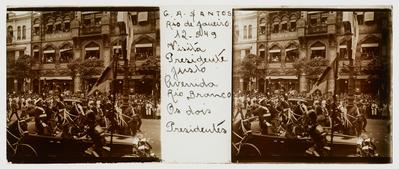 G. A. SANTOS
Rio de Janeiro
12-8-49
Visita
Presidente
Justo
Avenida
Rio Branco
Os dois
Presidentes